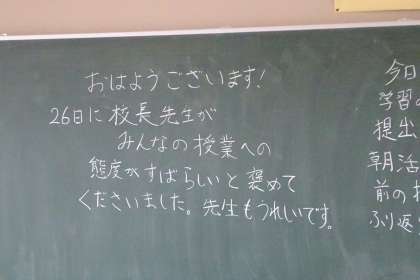 おはようございます!
26日に校長先生が
みんなの授業への
態度がすばらしいと褒めて
くださいました。先生もうれしいです。
今日
学習の
提出
朝活
前の
ふり返